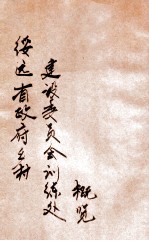 绥远省政府乡村
建设委员会训练处
概览